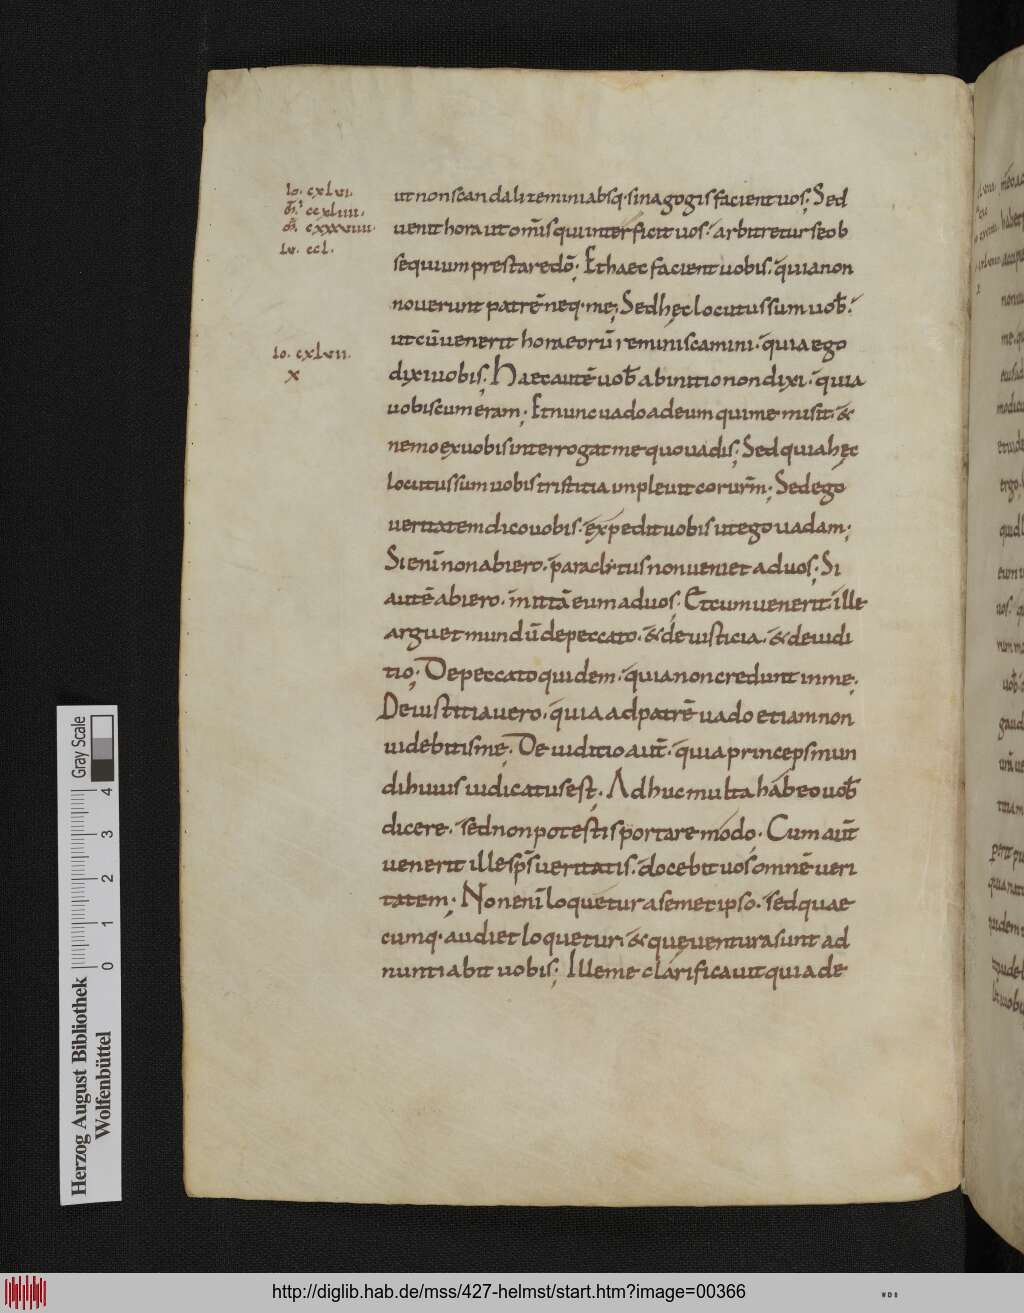 Io. cxlvi.
m̄.' ccxliiii.
m̄. cxxxviiii.
Lu. ccl.
ut non scandalizemini absq· sinagogis facient uos; Sed
uenit hora ut om̄is qui interficit uos· arbitretur se ob
sequium prestare dō; Et haec facient uobis· quia non
nouerunt patrē neq· me; Sed hęc locutus sum uob̄·
ut cū uenerit hora eorū reminiscamini· quia ego
Io. cxlvii.
x
dixi uobis; Haec autē uob̄ ab initio non dixi· quia
uobiscum eram; Et nunc uado ad eum qui me misit· &
nemo ex uobis interrogat me quo uadis; Sed quia hęc
locutus sum uobis tristitia impleuit cor urm̄; Sed ego
ueritatem dico uobis· expedit uobis ut ego uadam;
Si enī non abiero· paraclytus non ueniet ad uos; Si
autē abiero· mittā eum ad uos; Et cum uenerit ille
arguet mundū de peccato· & de iusticia· & de iudi
tio; De peccato quidem· quia non credunt in me;
De iustitia uero· quia ad patrē uado et iam non
uidebitis me; De iuditio aut̄· quia princeps mun
di huius iudicatus est; Adhuc multa habeo uob̄
dicere· sed non potestis portare modo· Cum aut̄
uenerit ille sps̄ ueritatis· docebit uos omnē ueri
tatem; Non enī loquetur a semet ipso· sed quae
cumq· audiet loquetur· & que uentura sunt ad
nuntiabit uobis; Ille me clarificauit quia de
Herzog August Bibliothek
Wolfenbüttel
0 1 2 3 4
Gray Scale
http://diglib.hab.de/mss/427-helmst/start.htm?image=00366